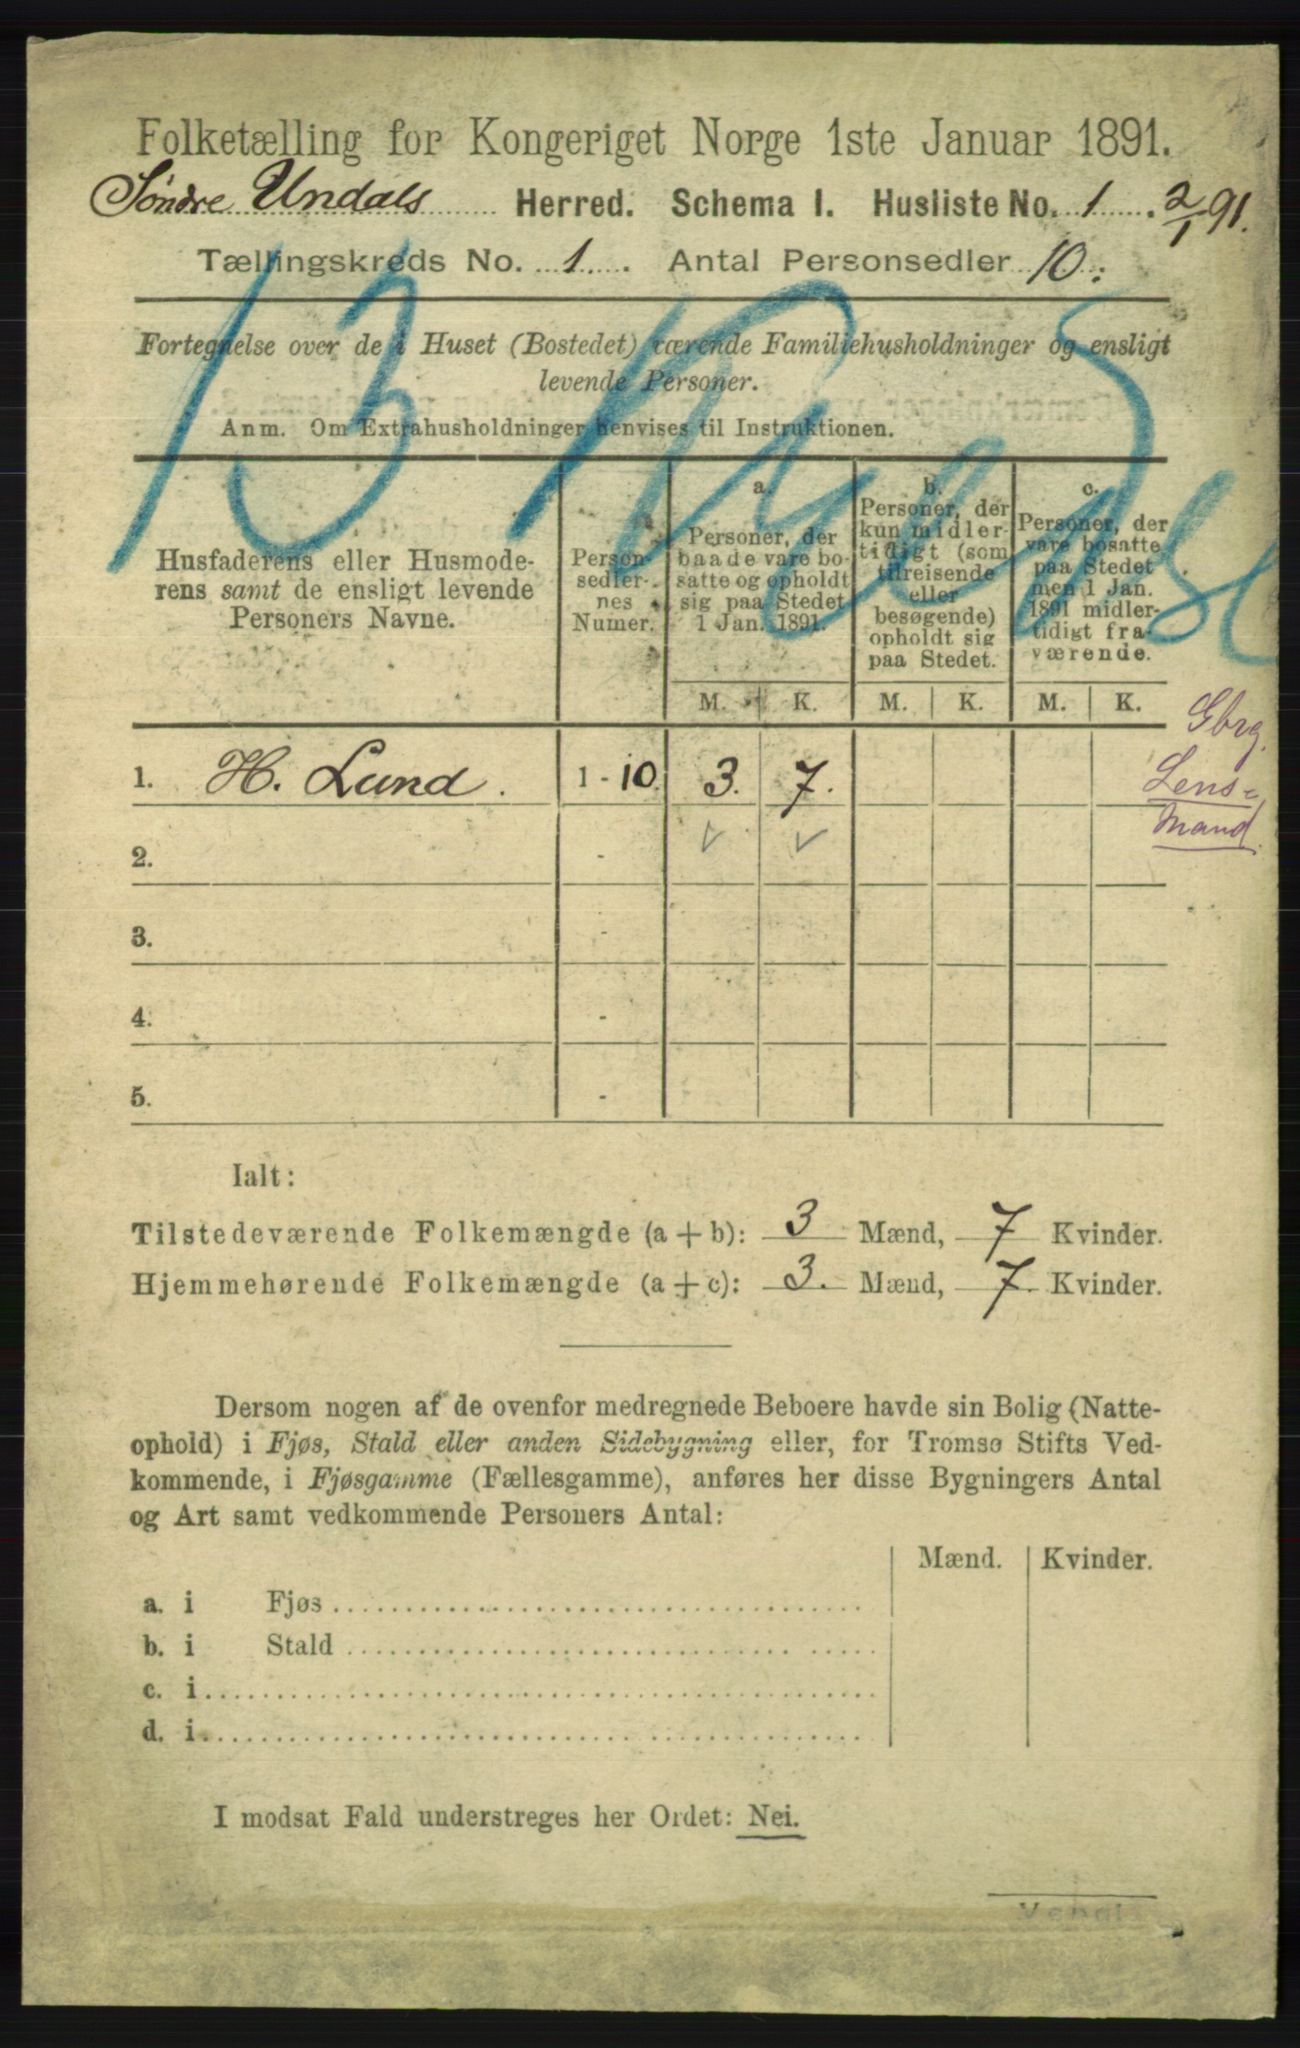 Folketælling for Kongeriget Norge 1ste Januar 1891.
Søndre Undals Herred. Schema I. Husliste No. 1. 2/1 91.
Tællingskreds No. 1. Antal Personsedler 10.
Fortegnelse over de i Huset (Bostedet) værende Familiehusholdninger og ensligt
levende Personer.
Anm. Om Extrahusholdninger henvises til Instruktionen.
13
Husfaderens eller Husmode-
rens samt de ensligt levende
Personers Navne.
Person-
sedler-
nes
Numer.
a.
Personer, der
baade vare bo-
satte og opholdt
sig paa Stedet
1 Jan. 1891.
b.
Personer, der
kun midler-
tidigt (som
tilreisende
eller
besøgende)
opholdt sig
paa Stedet.
c.
Personer, der
vare bosatte
paa Stedet
men 1 Jan.
1891 midler-
tidigt fra-
værende.
M. K. M. K. M. K.
Gbrg.
1. H. Lund. 1 - 10. 3. 7.
Lens=
mand.
2. -
3. -
4. -
5. -
Ialt:
Tilstedeværende Folkemængde (a + b): 3 Mænd, 7 Kvinder.
Hjemmehørende Folkemængde (a + c): 3. Mænd, 7. Kvinder.
Dersom nogen af de ovenfor medregnede Beboere havde sin Bolig (Natte-
ophold) i Fjøs, Stald eller anden Sidebygning eller, for Tromsø Stifts Ved-
kommende, i Fjøsgamme (Fællesgamme), anføres her disse Bygningers Antal
og Art samt vedkommende Personers Antal:
Mænd. Kvinder.
a. i Fjøs
b. i Stald
c. i
d. i
I modsat Fald understreges her Ordet: Nei.